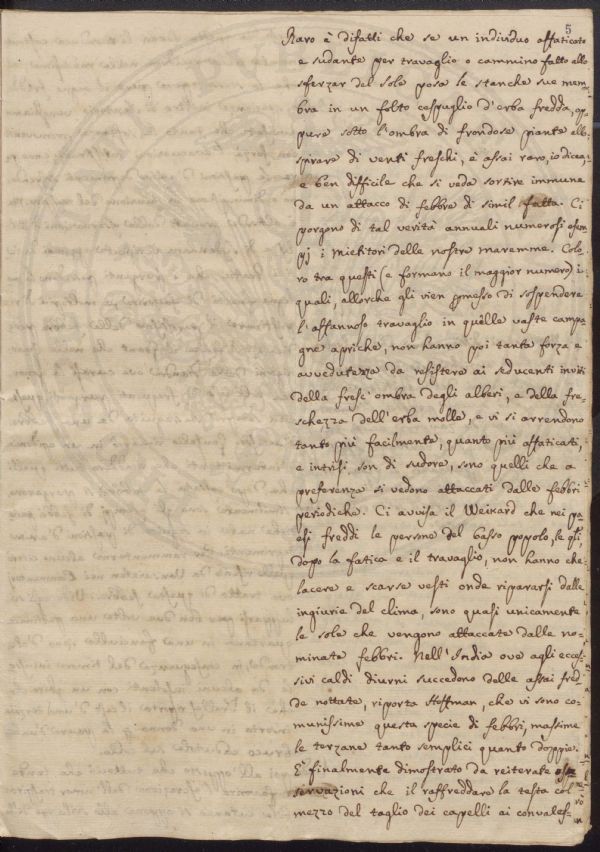 5
Raro è difatti che se un individuo affaticato
e sudante per travaglio o cammino fatto allo
sferzar del sole posa le stanche sue mem-
bra in un folto cespuglio d'erba fredda, op-
pure sotto l'ombra di frondose piante allo
spirare di venti freschi, è assai raro, io dico,
e ben difficile che si veda sortire immune
da un attacco di febbre di simil fatta. Ci
porgono di tal verità annuali numerosi esem
pj i Mietitori delle nostre maremme. Colo
ro tra questi (e formano il maggior numero) i
quali, allorche gli vien promesso di sospendere
l'affannoso travaglio in quelle vaste campa
gne apriche, non hanno poi tanta forza e
avvedutezza da resistere ai seducenti inviti
della fresc'ombra degli alberi, e della fre-
schezza dell'erba molle, e vi si arrendono
tanto più facilmente, quanto più affaticati,
e intrisi son di sudore, sono quelli che a
preferenza si vedono attaccati dalle febbri
periodiche. Ci avvisa il Weikard che nei pa-
esi freddi le persone del basso popolo, le qli
dopo la fatica e il travaglio, non hanno che
lacere e scarse vesti onde ripararsi dalle
ingiurie del clima, sono quasi unicamente
le sole che vengono attaccate dalle no-
minate febbri. Nell'India ove agli eccos
sivi caldi diurni succedono delle assai fred
de nottate, riporta Hoffman, che vi sono co-
munissime questa specie di febbri, massime
le terzane tanto semplici quanto doppie.
E' finalmente dimostrato da reiterate os
servazioni che il raffreddare la testa col
mezzo del taglio dei capelli ai convales-